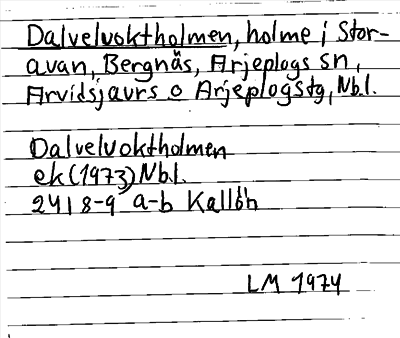 Dalveluoktholmen, holme i Stor-
avan, Bergnäs, Arjeplogs sn,
Arvidsjaurs o Arjeplogs tg, Nbl.
Dalveluoktholmen
ek (1973) Nbl.
2418-9 a-b Kallöh
LM 1974